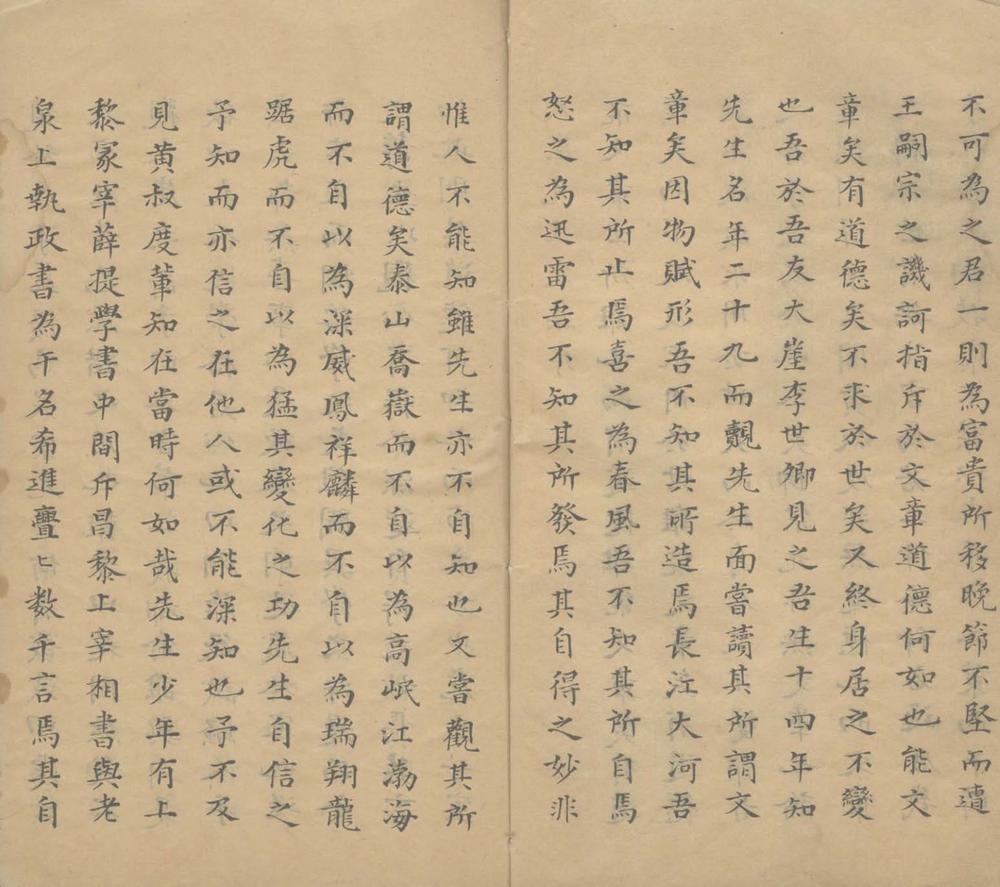 不可為之君一則為富貴所移晚節不堅而遺
王嗣宗之譏訶指斥於文章道德何如也能文
章矣有道德矣不求於世矣又終身居之不變
也吾於吾友大崖李世卿見之吾生十四年知
先生名年二十九而覿先生面嘗讀其所謂文
章矣因物賦形吾不知其所造焉長江大河吾
不知其所止焉喜之為春風吾不知其所自焉
怒之為迅雷吾不知其所發焉其自得之妙非
惟人不能知雖先生亦不自知也又嘗觀其所
謂道德矣泰山喬嶽而不自以為高岷江渤海
而不自以為深威鳳祥麟而不自以為瑞翔龍
踞虎而不自以為猛其變化之功先生自信之
予知而亦信之在他人或不能深知也予不及
見黄叔度軰知在當時何如哉先生少年有上
黎冢宰薛提學書中間斥昌黎上宰相書與老
泉上執政書為干名希進亹〻数千言焉其自